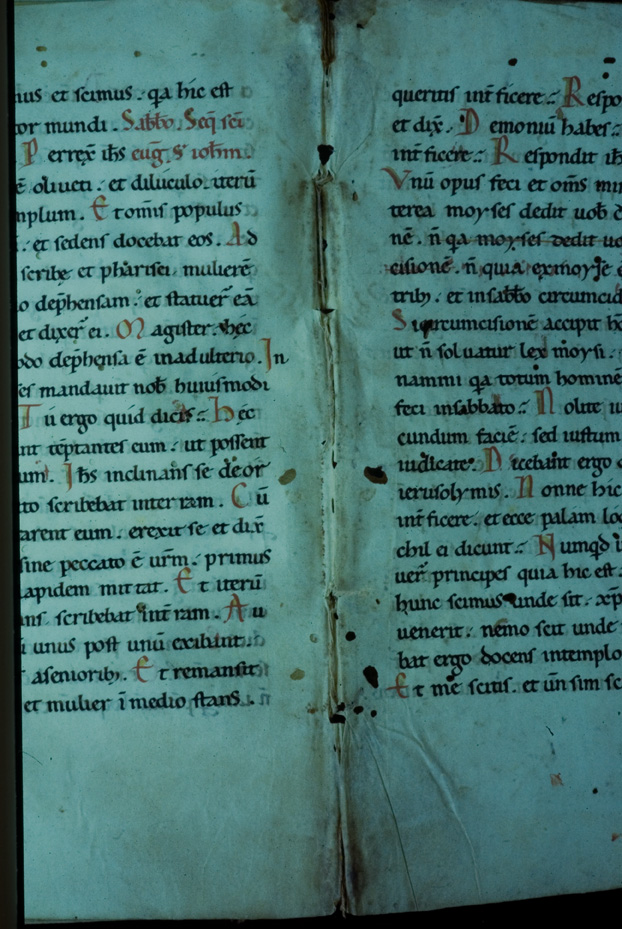 et scimus . qa hic est
mundi . Sabbo . Seq̄ sci
P errex̄ ihs euḡ. S iohm.
oliueti . et diluculo . iterū
E t om̄is populus
. et sedens docebat eos . Ad
scribe et pharisei . mulierē
dep̄hensam . et statuer̄ eā
et dixer̄ ei . M agister . hec
dep̄hensa ē inadulterio . In
mandauit nob̄ huiusmodi
T u ergo quid dicis . H ec
tēptantes eum . ut possent
I hs inclinans se deor
scribebat inter ram . C ū
eum . erexit se et dix̄
sine peccato ē ur̄m . primus
lapidem mittat . E t iterū
scribebat int̄ ram . A u
unus post unū exibant .
asenioriby . E t remansit
et mulier ī medio stans .
queritis int̄ ficere . Respo
et dix̄ . D emoniū habes .
int̄ ficere . R espondit ih
Vnū opus feci et om̄s
terea moyses dedit uob̄
nē . n̄ qa moyses dedit
cisionē . n̄ quia exmoyse
triby . et insabbo circumcid
S icircumcisionē accipit
ut n̄ soluatur lex moysi .
nammi qa totum hominē
feci insabbato . N olite
cundum faciē . sed iustum
iudicate . D icebant ergo
ierusolymis . N onne hic
int̄ ficere . et ecce palam lo
chil ei dicunt . N umqd
uer̄ principes quia hic est .
hunc scimus unde sit . xp̄
uenerit . nemo scit unde
bat ergo docens intemplo
E t me scitis . et un̄ sim sc